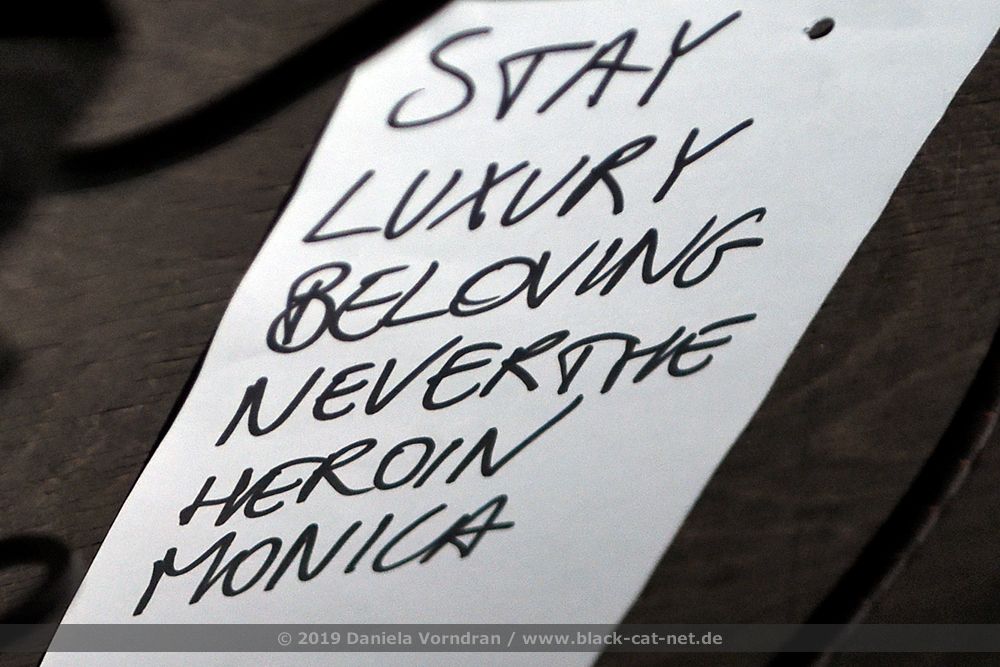 STAY
LUXURY
BELOVING
NEVERTHE
HEROIN
MONICA
© 2019 Daniela Vorndran / www.black-cat-net.de